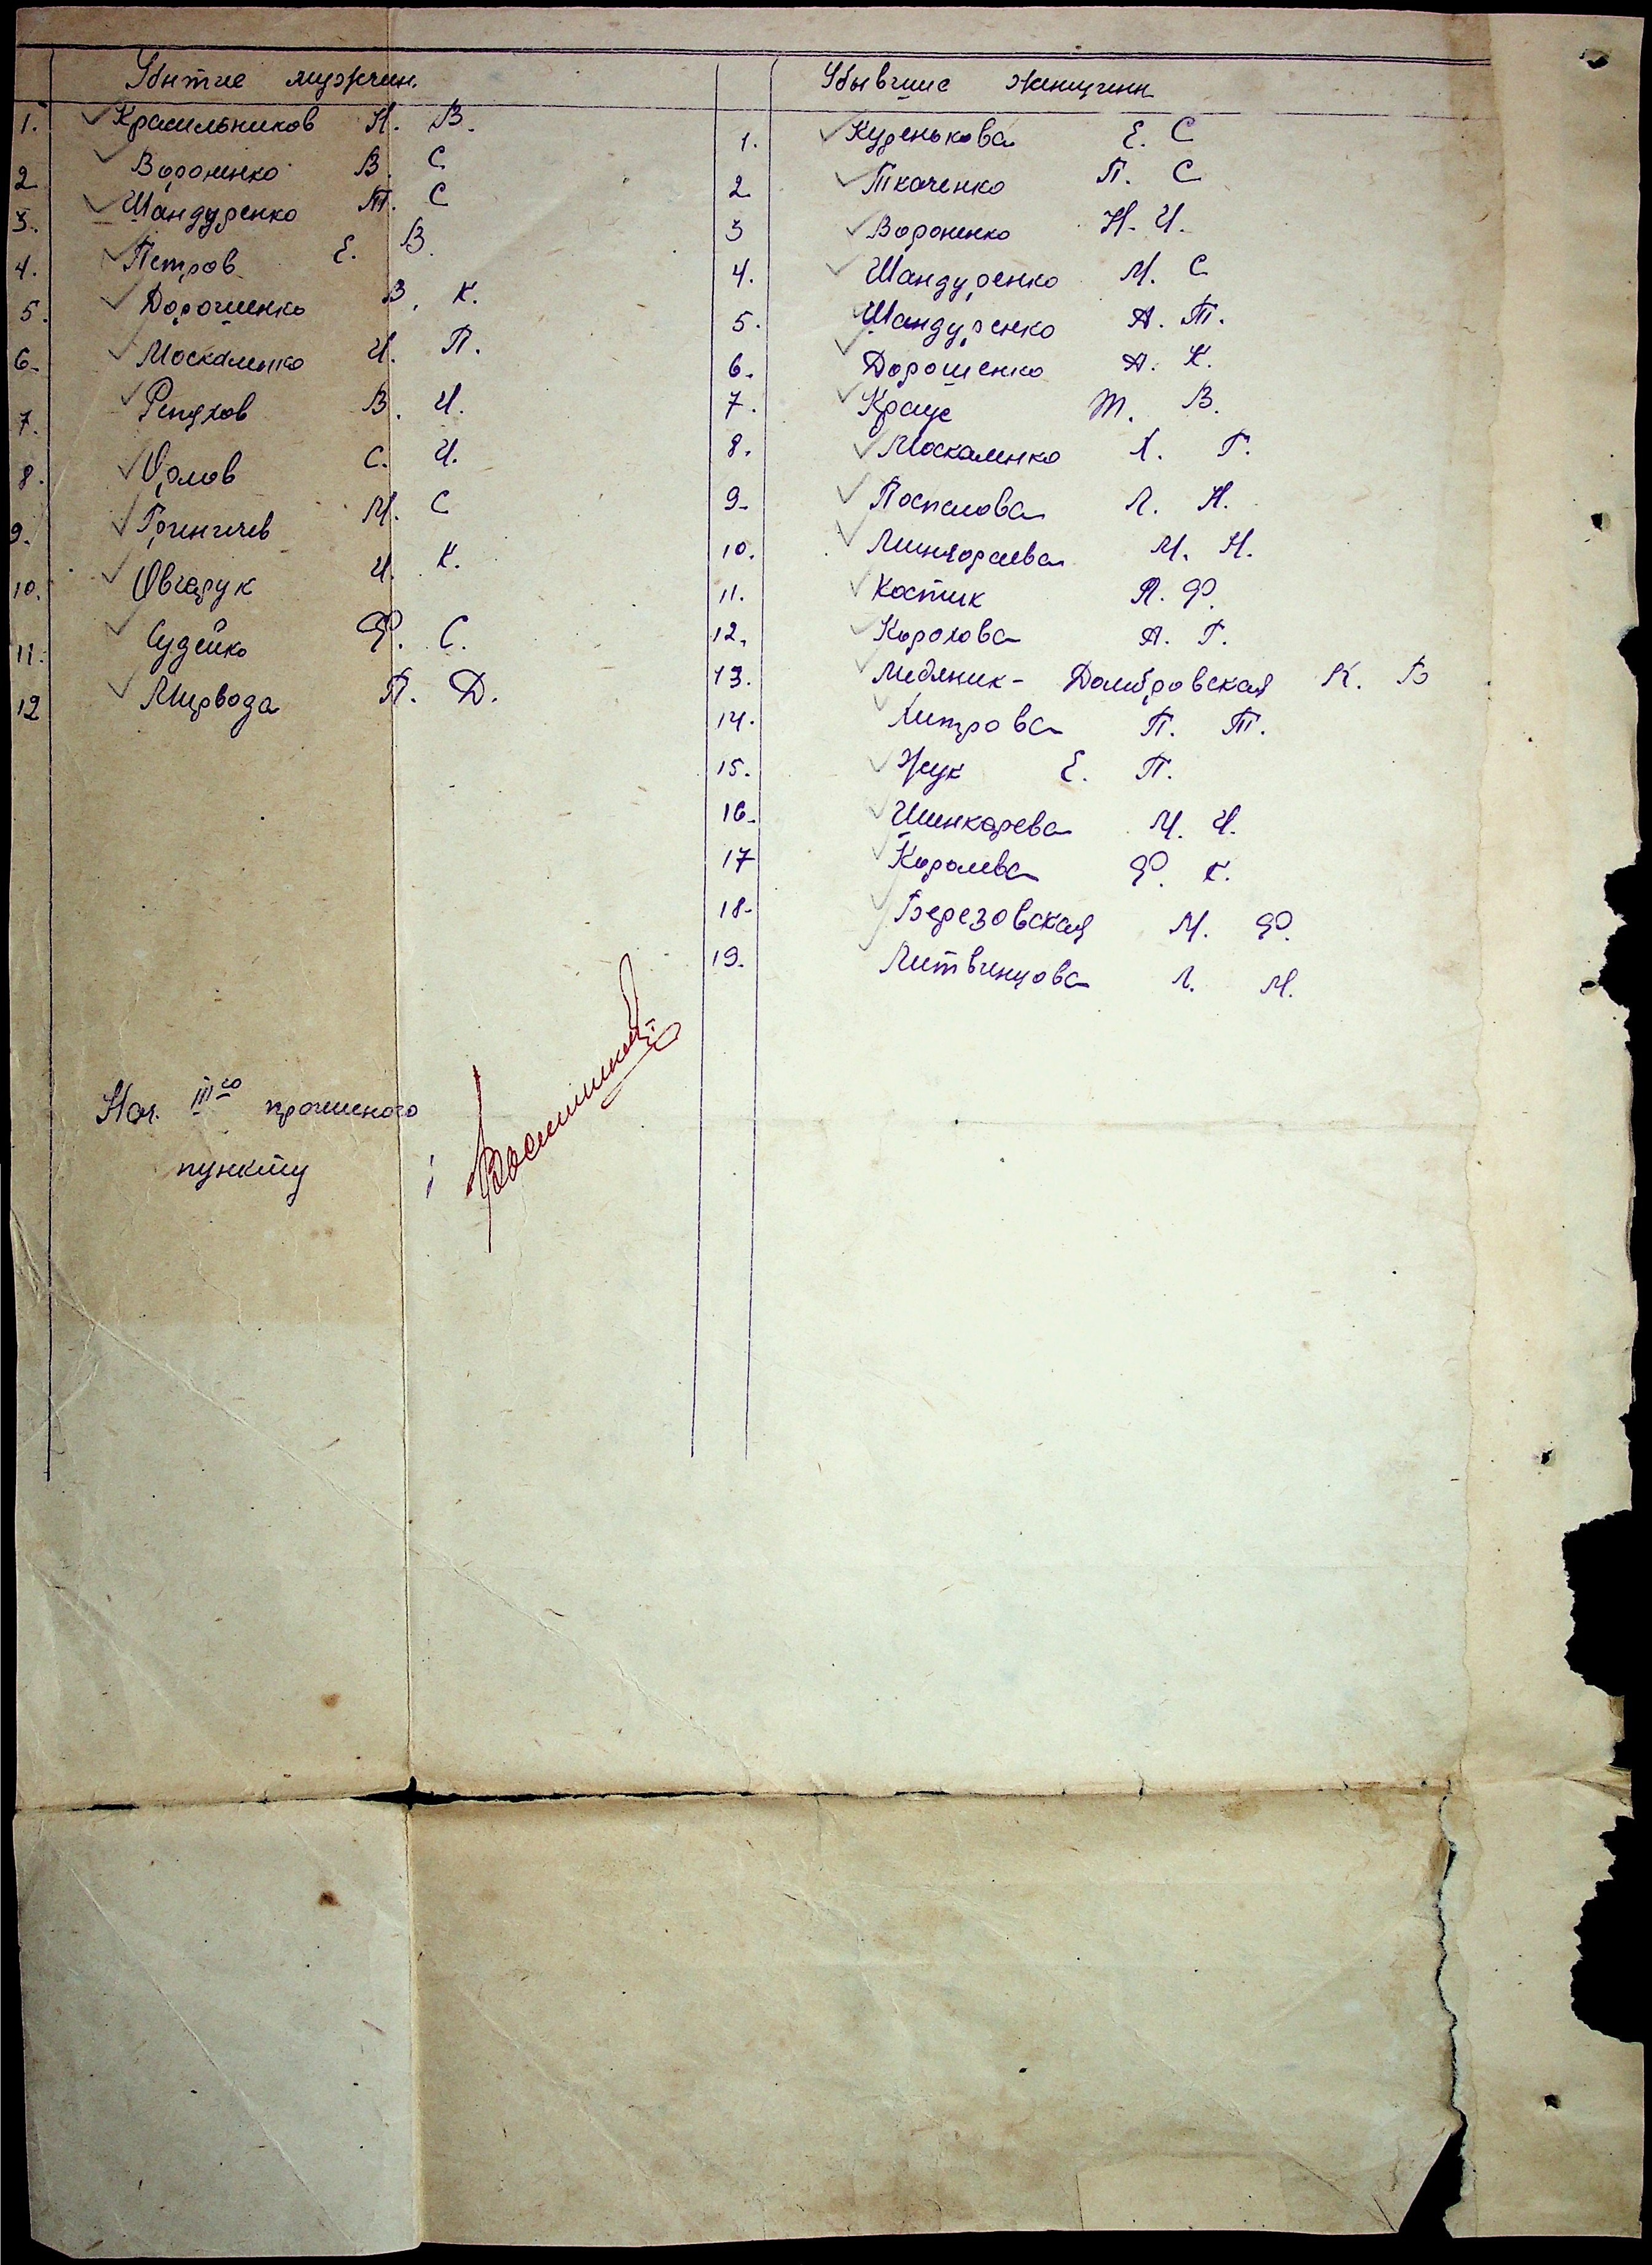 Убытие мужчин.
1. Красильников Н. В.
2 Вороненко В. С
3. Шандуренко Т. С
4. Петров Е. В.
5. Дорошенко В. К.
6. Москаленко И. П.
7. Репухов В. И.
8. Орлов С. И.
9. М. С
10. Овчарук И. К.
11. Судейко Ф. С.
12 Мирвода П. Д.
Нач. III го
пункту
Убывшие женщинн
1. Куренькова Е. С
2 Ткаченко П. С
3 Вороненко Н. И.
4. Шандуренко М. С
5. Шандуренко А. Т.
6. Дорошенко А. К.
7. Краус В.
8. Москаленко Г.
9. Поспелова Л. Н.
10. М. Н.
11. Костик Ф.
12. А. Г.
13. Медяник- Домбровская К. Б
14. Хитрова П. Т.
15. Жук Е. П.
16. Шинкарева М. И.
17 Королева Ф. Г.
18. Березовская М. Ф.
19. Литвинцова Л. М.